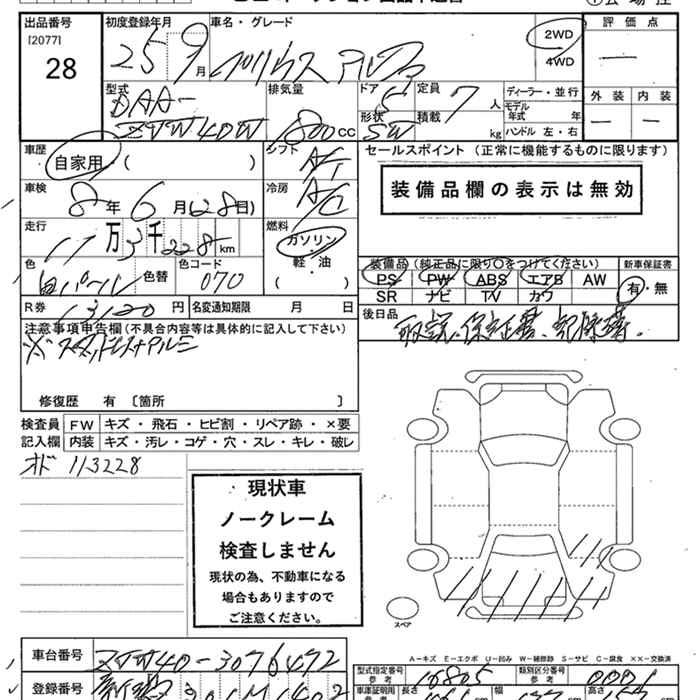 出品番号
[2077]
28
初度登録年月
25 9月
車名・グレード
プリウス アルファ
2WD
4WD
評価点
外装 内装
型式
DAA-
ZVW40W
排気量
1800CC
ドア
5
形状
SW
定員
7人
積載
kg
ディーラー・並行
モデル
年式 年
ハンドル 左・右
車歴
自家用 ( )
シフト
AT
セールスポイント (正常に機能するものに限ります)
装備品欄の表示は無効
車検
8年6月(28日)
冷房
A/C
走行
11万3千228km
燃料
ガソリン
軽・油
( )
色
白パール
色替
色コード
070
装備品 (純正品に限り○をつけてください)
PS PW ABS エアB AW
SR ナビ TV カワ
新車保証書
有・無
R券
13120円
名変通知期限 月 日
後日品
取説.保証書.記録簿.
注意事項申告欄(不具合内容等は具体的に記入して下さい)
※スタッドレスアルミ
修復歴 有 〔箇所 〕
検査員 FW キズ・飛石・ヒビ割・リペア跡・×要
記入欄 内装 キズ・汚レ・コゲ・穴・スレ・キレ・破レ
オド 113228
現状車
ノークレーム
検査しません
現状の為、不動車になる
場合もありますので
ご注意ください。
スペア
A-キズ E-エクボ U-凹み W-補修跡 S-サビ C-腐食 ××-交換済
車台番号
ZVW40-3076472
型式指定番号
参考
16805
類別区分番号
参考
0001
登録番号
車庫証明用
長さ
cm
幅
cm
高さ